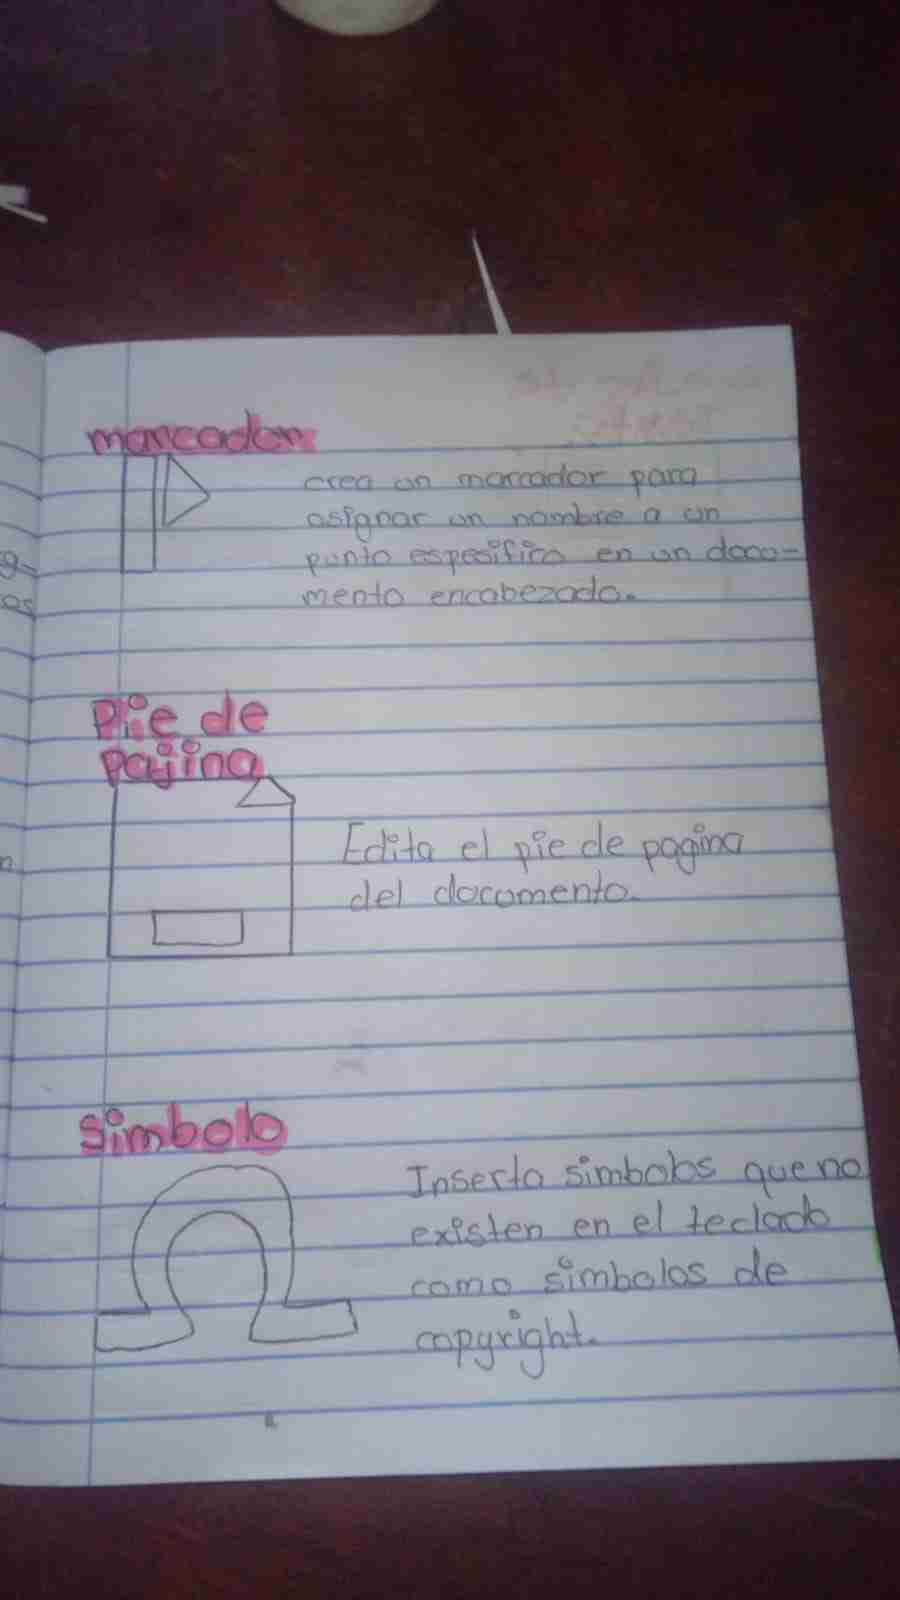 marcador
crea un marcador para
asignar un nombre a un
punto espesifico en un docu-
mento encabezado.
Pie de
pajina
Edita el pie de pagina
del documento.
simbolo
Inserta simbolos que no
existen en el teclado
como simbolos de
copyright.